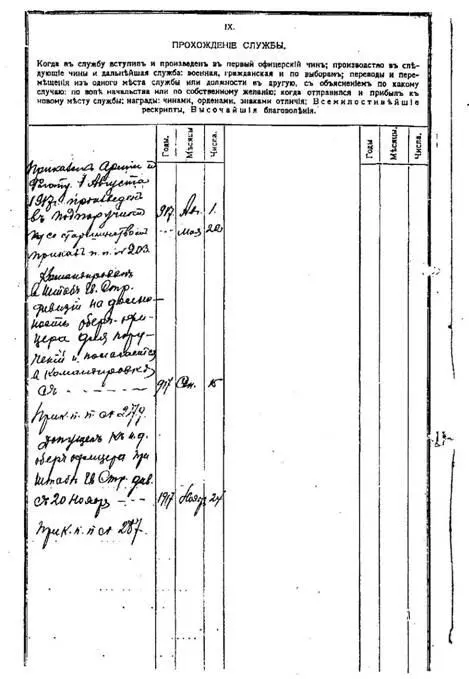 IX.
ПРОХОЖДЕНІЕ СЛУЖБЫ.
Когда въ службу вступилъ и произведенъ въ первый офицерскій чинъ; производство въ слѣ-
дующіе чины и дальнѣйшая служба: военная, гражданская и по выборамъ; переводы и пере-
мѣщенія изъ одного мѣста службы или должности въ другую, съ объясненіемъ по какому
случаю: по волѣ начальства или по собственному желанію; когда отправился и прибылъ къ
новому мѣсту службы; награды: чинами, орденами, знаками отличія; Всемилостивѣйшіе
рескрипты, Высочайшія благоволенія.
Годы. Мѣсяцы Числа. Годы. Мѣсяцы. Числа.
Приказомъ Арміи и
Флоту 1 Августа
1917г. произведенъ
въ подпоручики 917. Ав. 1.
со старшинствомъ мая 22
приказъ п. п. № 203
Командированъ
въ Штабъ Св. Стр.
дивизіи на долж-
ность оберъ-офи-
цера для пору-
ченій и полагается
въ командировкѣ
917 Сен. 15
Прик. п. п. № 279.
допущенъ къ и. д.
оберъ офицера при
Штабѣ Св. Стр. див.
съ 20 Ноября 1917 Ноя 24
Прик. п. п. № 287.